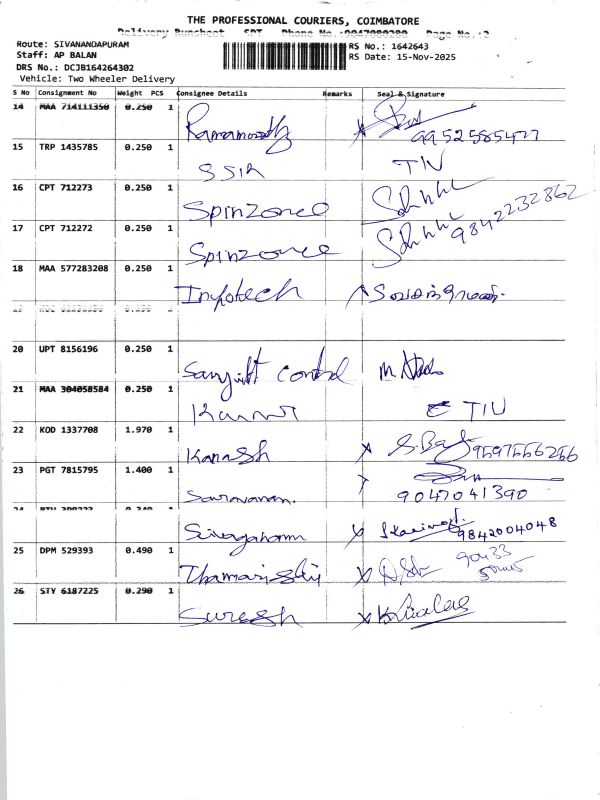 THE PROFESSIONAL COURIERS, COIMBATORE
Delivery Runsheet SPT Phone No.:0047000200 Page No.:2
Route: SIVANANDAPURAM RS No.: 1642643
Staff: AP BALAN RS Date: 15-Nov-2025
DRS No.: DCJB164264302
Vehicle: Two Wheeler Delivery
S No Consignment No Weight PCS Consignee Details Remarks Seal & Signature
14 MAA 714111350 0.250 1 Ramamoorthy 9952585477
15 TRP 1435785 0.250 1 SSIR TIU
16 CPT 712273 0.250 1 Spinzonce
17 CPT 712272 0.250 1 Spinzonce 9842232862
18 MAA 577283208 0.250 1 Infotech
19 0.250 1
20 UPT 8156196 0.250 1 control
21 MAA 304058584 0.250 1 TIU
22 KOD 1337708 1.970 1 Kanagsh 9597556256
23 PGT 7815795 1.400 1 Saravanan. 9047041390
24 0.340 1 9842004048
25 DPM 529393 0.490 1 90433
26 STY 6187225 0.290 1 Suresh